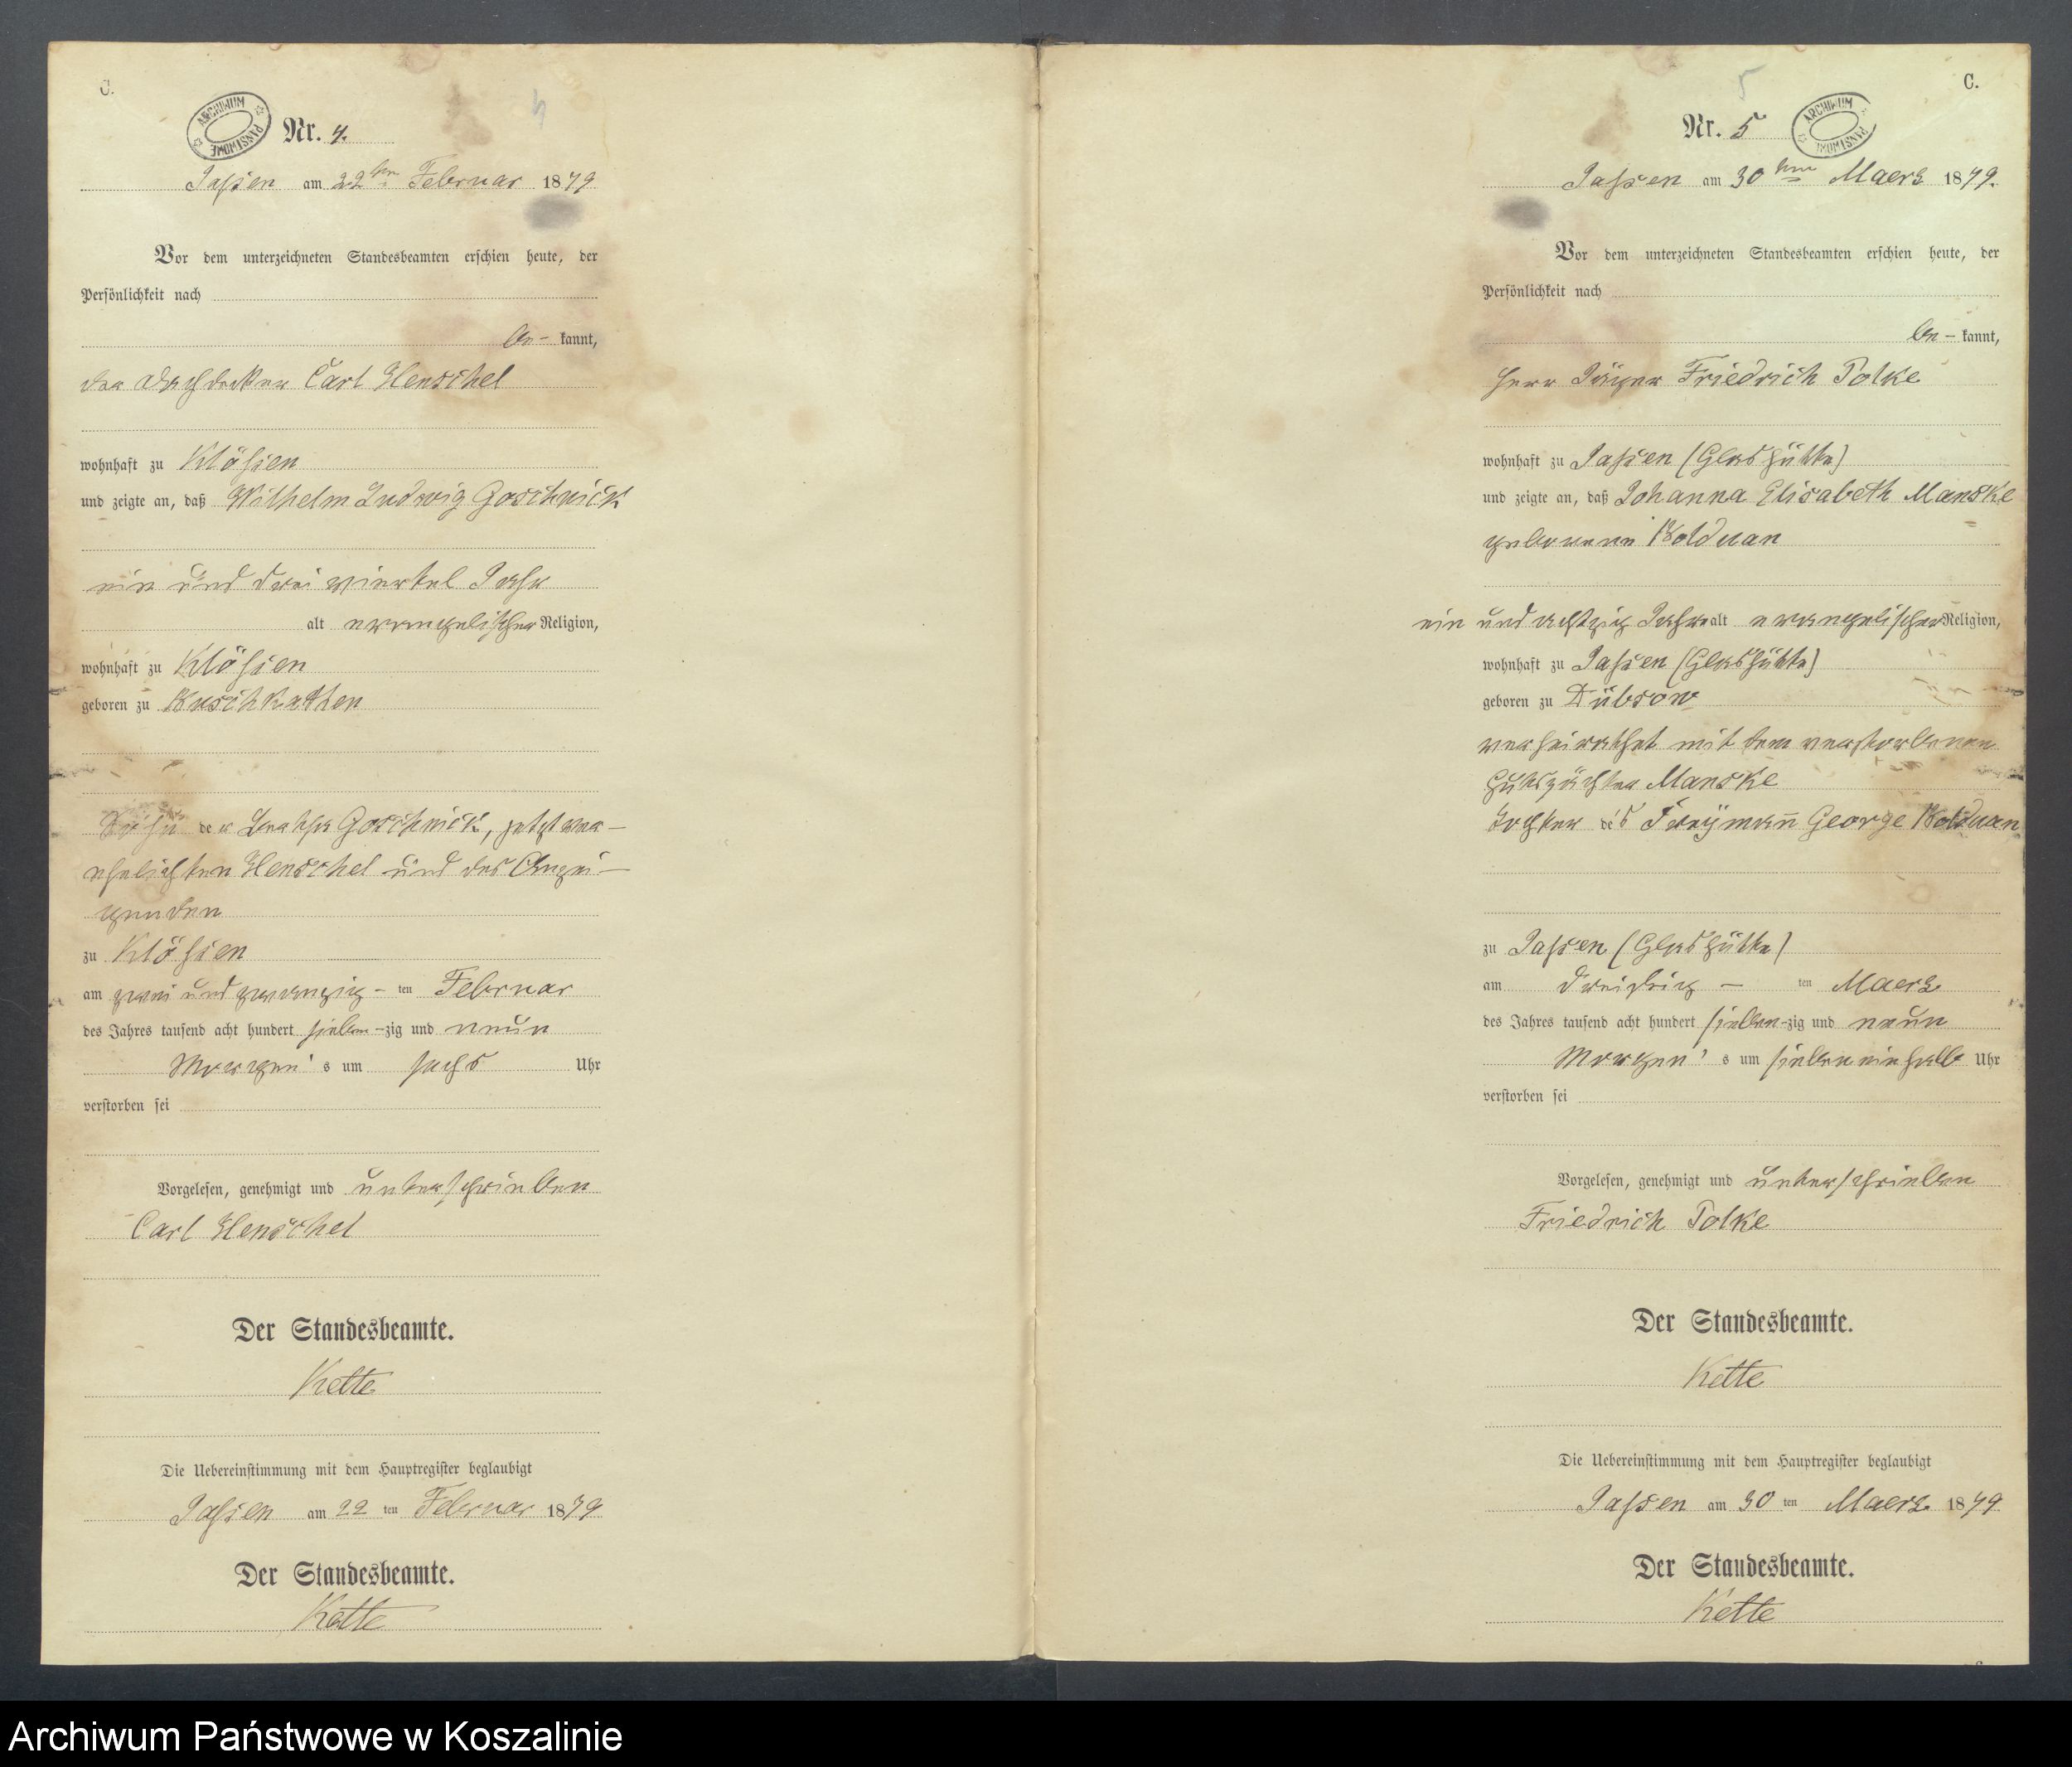 C.
ARCHIWUM PAŃSTWOWE
4
Nr. 4.
Jassen am 22ten Februar 1879
Vor dem unterzeichneten Standesbeamten erschien heute, der
Persönlichkeit nach
be- kannt,
der Dachdecker Carl Henschel
wohnhaft zu Klößen
und zeigte an, daß Wilhelm Ludwig Goschnick
ein und drei viertel Jahr
alt evangelischer Religion,
wohnhaft zu Klößen
geboren zu Buschkathen
Sohn der Goschnick, jetzt ver-
ehelichten Henschel und des Anzei-
genden
zu Klößen
am zwei und zwanzig - ten Februar
des Jahres tausend acht hundert sieben-zig und neun
Morgen's um sechs Uhr
verstorben sei
Vorgelesen, genehmigt und unterschrieben
Carl Henschel
Der Standesbeamte.
Kette
Die Uebereinstimmung mit dem Hauptregister beglaubigt
Jassen am 22 ten Februar 1879
Der Standesbeamte.
Kette
C.
5
Nr. 5
ARCHIWUM PAŃSTWOWE
Jassen am 30ten Maerz 1879.
Vor dem unterzeichneten Standesbeamten erschien heute, der
Persönlichkeit nach
be- kannt,
Herr Jäger Friedrich Polke
wohnhaft zu Jassen (Glashütte)
und zeigte an, daß Johanna Elisabeth Manske
geborene Bolduan
ein und achtzig Jahre alt evangelischer Religion,
wohnhaft zu Jassen (Glashütte)
geboren zu Dübsow
verheirathet mit dem verstorbenen
Gutspächter Manske
Tochter des Freymann George Bolduan
zu Jassen (Glashütte)
am dreißig - ten Maerz
des Jahres tausend acht hundert sieben-zig und neun
Morgen's um sieben einhalb Uhr
verstorben sei
Vorgelesen, genehmigt und unterschrieben
Friedrich Polke
Der Standesbeamte.
Kette
Die Uebereinstimmung mit dem Hauptregister beglaubigt
Jassen am 30 ten Maerz 1879
Der Standesbeamte.
Kette
Archiwum Państwowe w Koszalinie